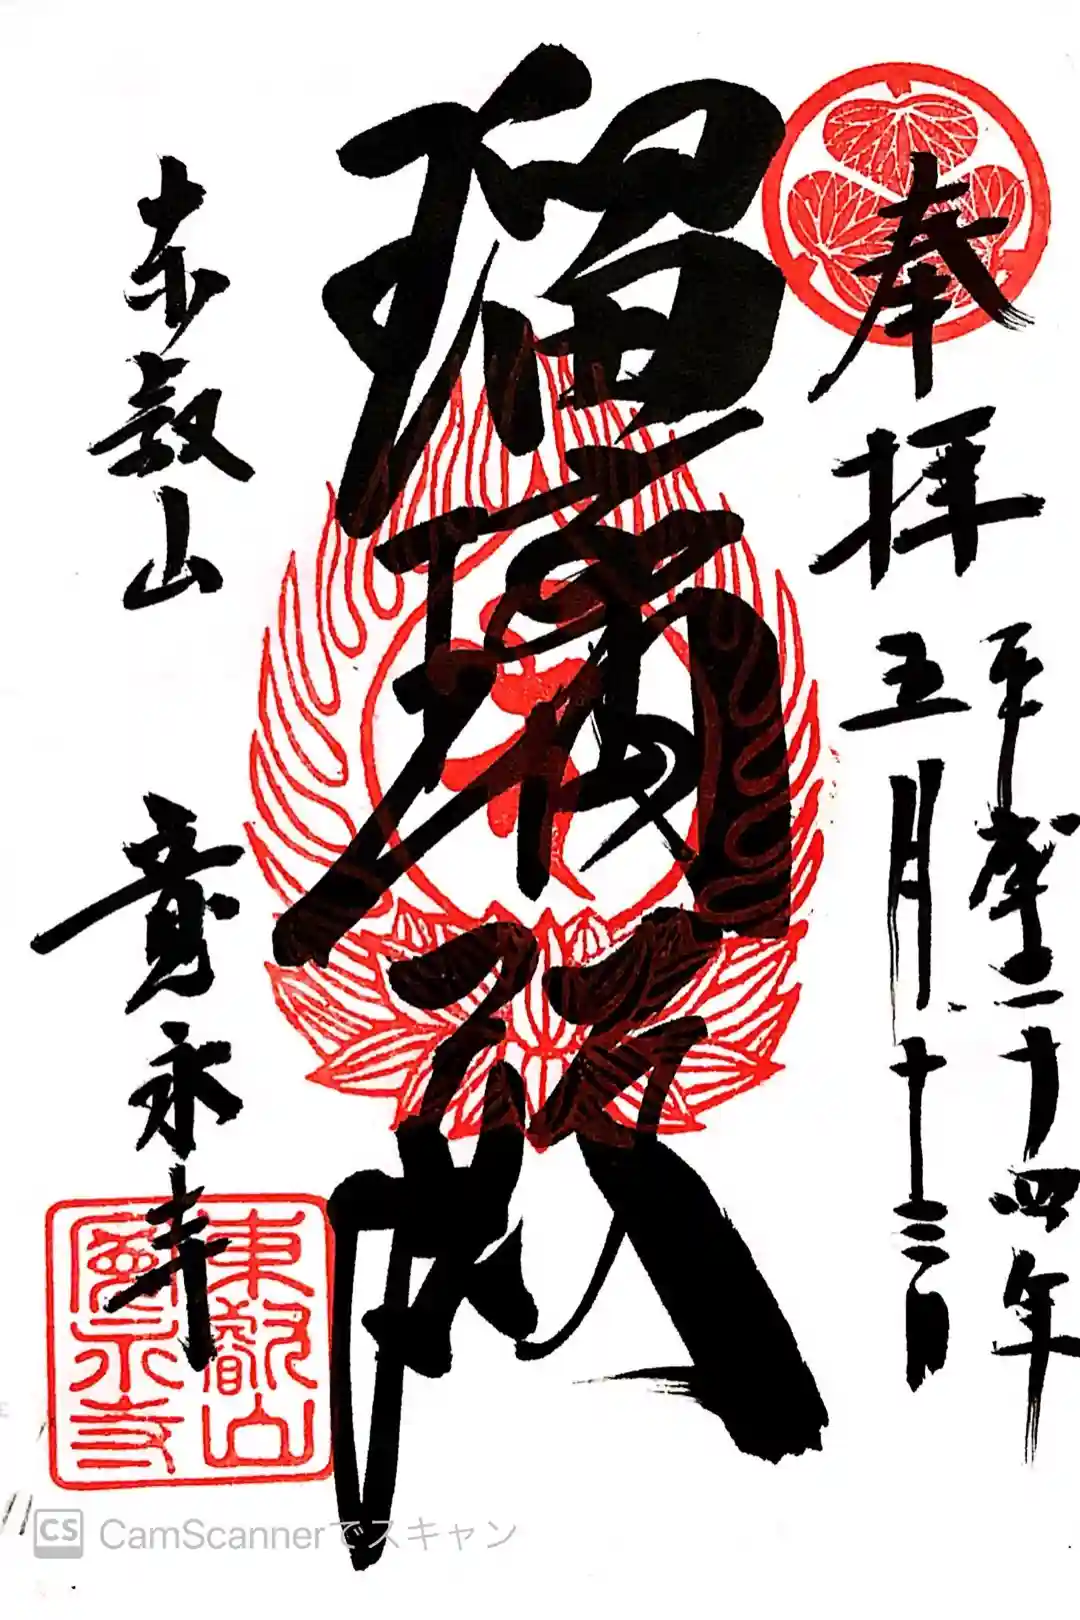 奉拝
平成二十四年
五月十三日
瑠璃殿
東叡山
寛永寺
東叡山
寛永寺
CS CamScannerでスキャン